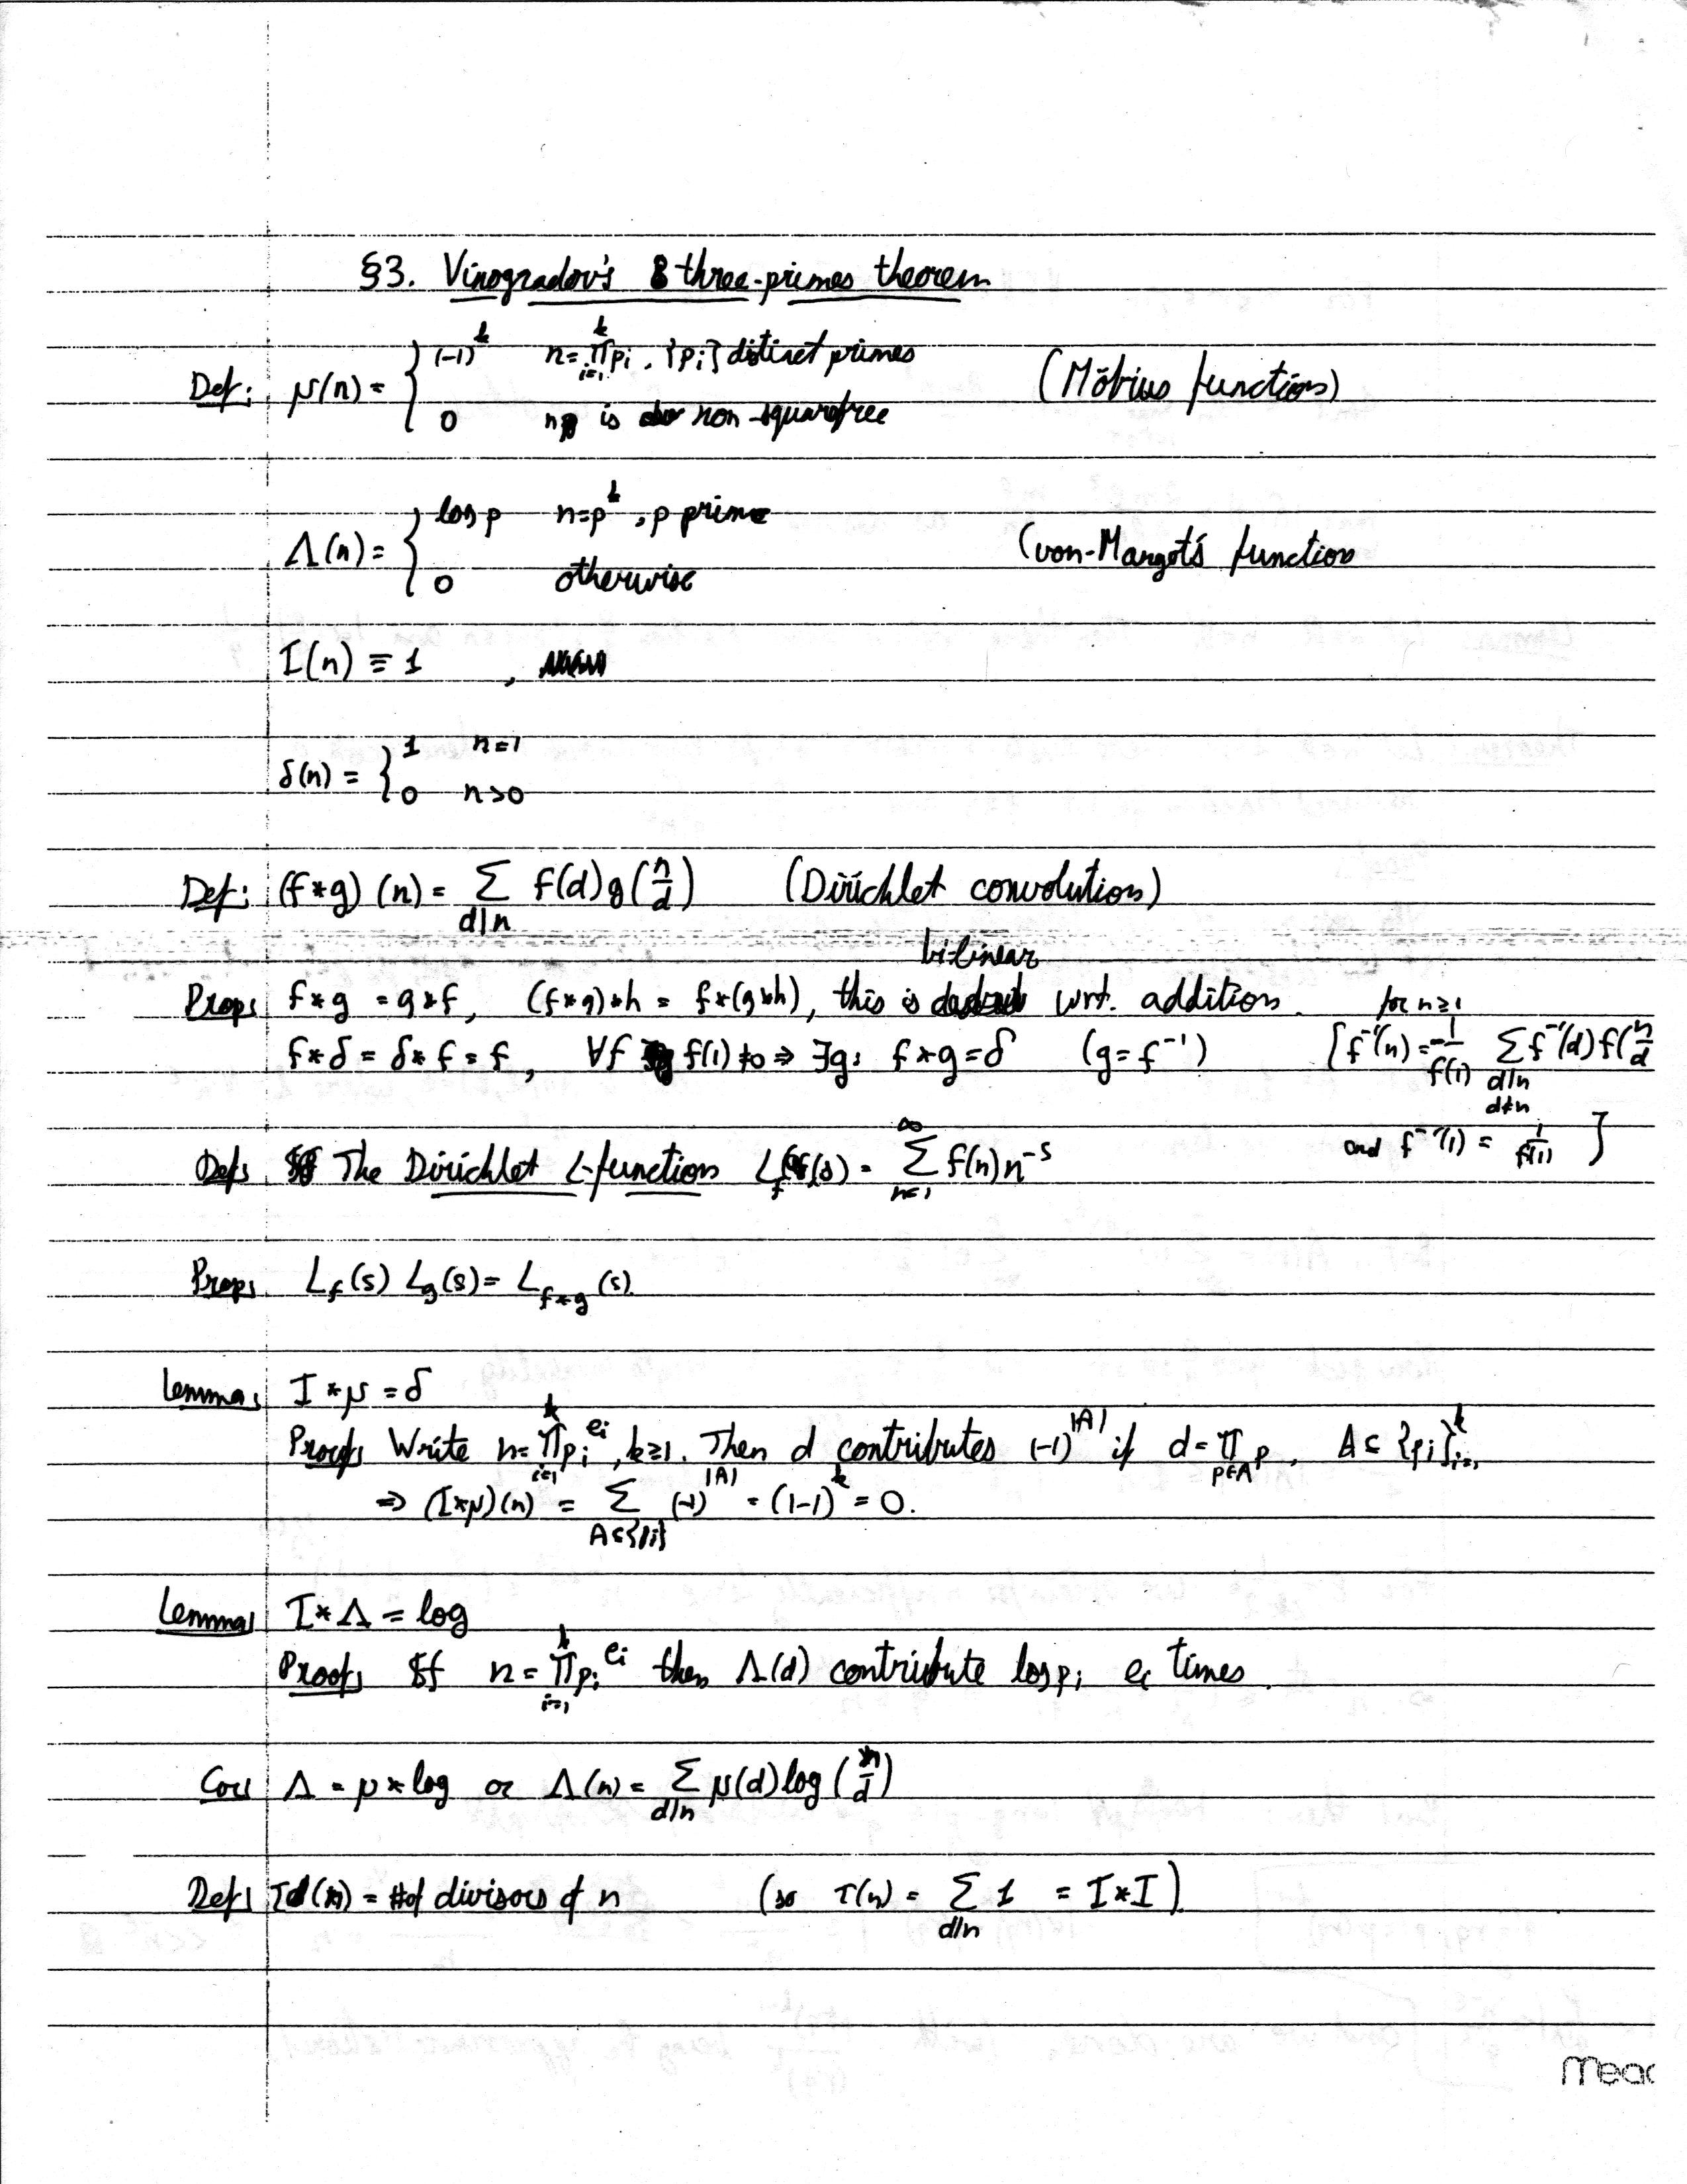 §3. Vinogradov's three-primes theorem
Def: μ(n) = { (-1)^k n = ∏_{i=1}^k p_i, {p_i} distinct primes (Möbius function)
0 n is non-squarefree
Λ(n) = { log p n=p^k, p prime (von-Mangot's function
0 otherwise
I(n) ≡ 1 ,
δ(n) = { 1 n=1
0 n>0
Def: (f*g)(n) = ∑_{d|n} f(d) g(n/d) (Dirichlet convolution)
Prop: f*g = g*f, (f*g)*h = f*(g*h), this is bi-linear wrt. addition. for n≥1
f*δ = δ*f = f, ∀f f(1)≠0 ⇒ ∃g: f*g=δ (g=f^{-1}) [f^{-1}(n) = -1/f(1) ∑_{d|n, d≠n} f^{-1}(d) f(n/d
and f^{-1}(1) = 1/f(1) ]
Def: The Dirichlet L-function L_f(s) = ∑_{n=1}^∞ f(n) n^{-s}
Prop: L_f(s) L_g(s) = L_{f*g}(s).
Lemma: I*μ = δ
Proof: Write n = ∏_{i=1}^k p_i^{e_i}, k≥1. Then d contributes (-1)^{|A|} if d = ∏_{p∈A} p, A⊂{p_i}_{i=1}^k
⇒ (I*μ)(n) = ∑_{A⊂{p_i}} (-1)^{|A|} = (1-1)^k = 0.
Lemma: I*Λ = log
Proof: If n = ∏_{i=1}^k p_i^{e_i} then Λ(d) contribute log p_i e_i times.
Cor: Λ = μ*log or Λ(n) = ∑_{d|n} μ(d) log(n/d)
Def: τ(n) = # of divisors of n (so τ(n) = ∑_{d|n} 1 = I*I)
Mead